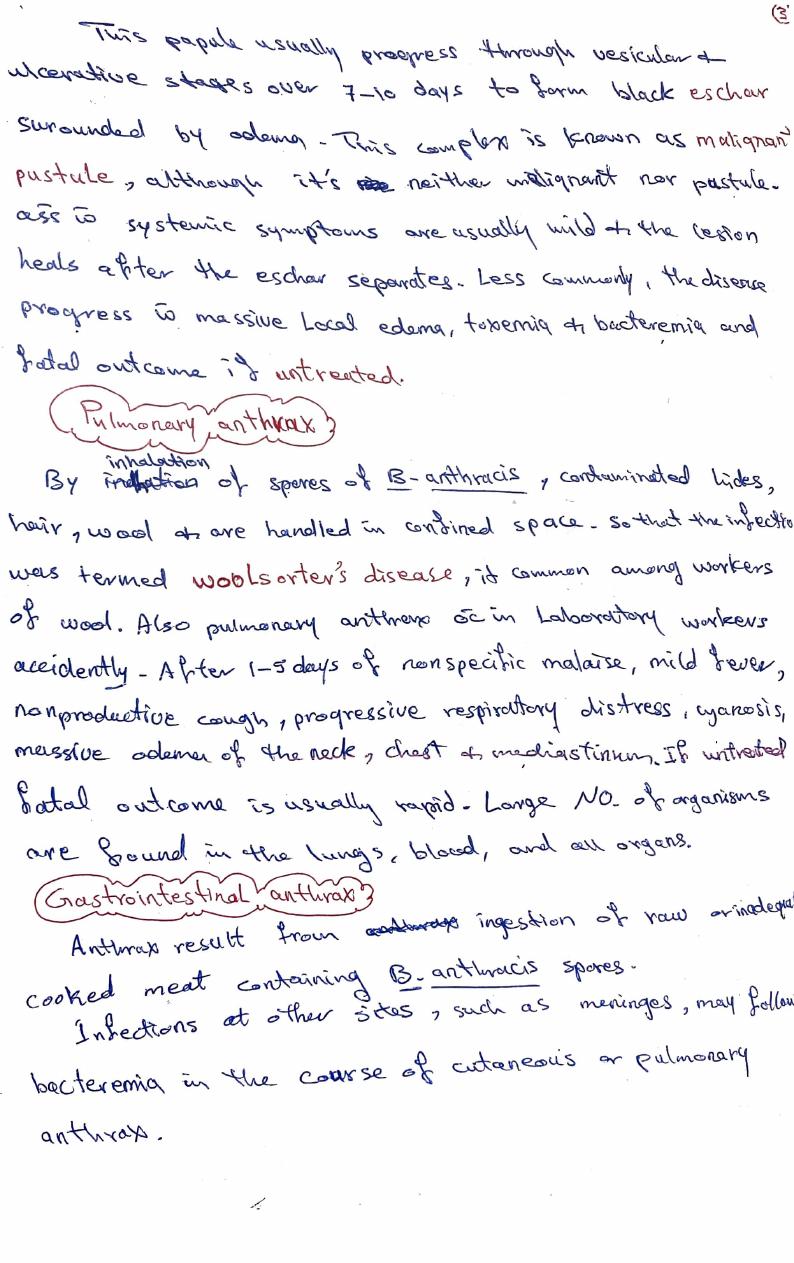 (3)
This papule usually progress through vesicular &
ulcerative stages over 7-10 days to form black eschar
surounded by odema. This complex is known as malignan
pustule, although it's neither malignant nor pustule.
ass c̄ systemic symptoms are usually mild & the lesion
heals after the eschar separates. Less commonly, the disease
progress c̄ massive Local edema, toxemia & bacteremia and
fatal outcome if untreated.
Pulmonary anthrax:
inhalation
By of spores of B-anthracis, contaminated hides,
hair, wool & are handled in confined space. so that the infectio
was termed woolsorter's disease, it common among workers
of wool. Also pulmonary anthrax oc in Laboratory workers
accidently. After 1-5 days of nonspecific malaise, mild fever,
nonproductive cough, progressive respiratory distress, cyanosis,
massive odema of the neck, chest & mediastinum. If untreated
fatal outcome is usually rapid. Large NO. of organisms
are found in the lungs, blood, and all organs.
Gastrointestinal anthrax:
Anthrax result from ingestion of raw or inadequa
cooked meat containing B. anthracis spores.
Infections at other sites, such as meninges, may follow
bacteremia in the course of cutaneous or pulmonary
anthrax.